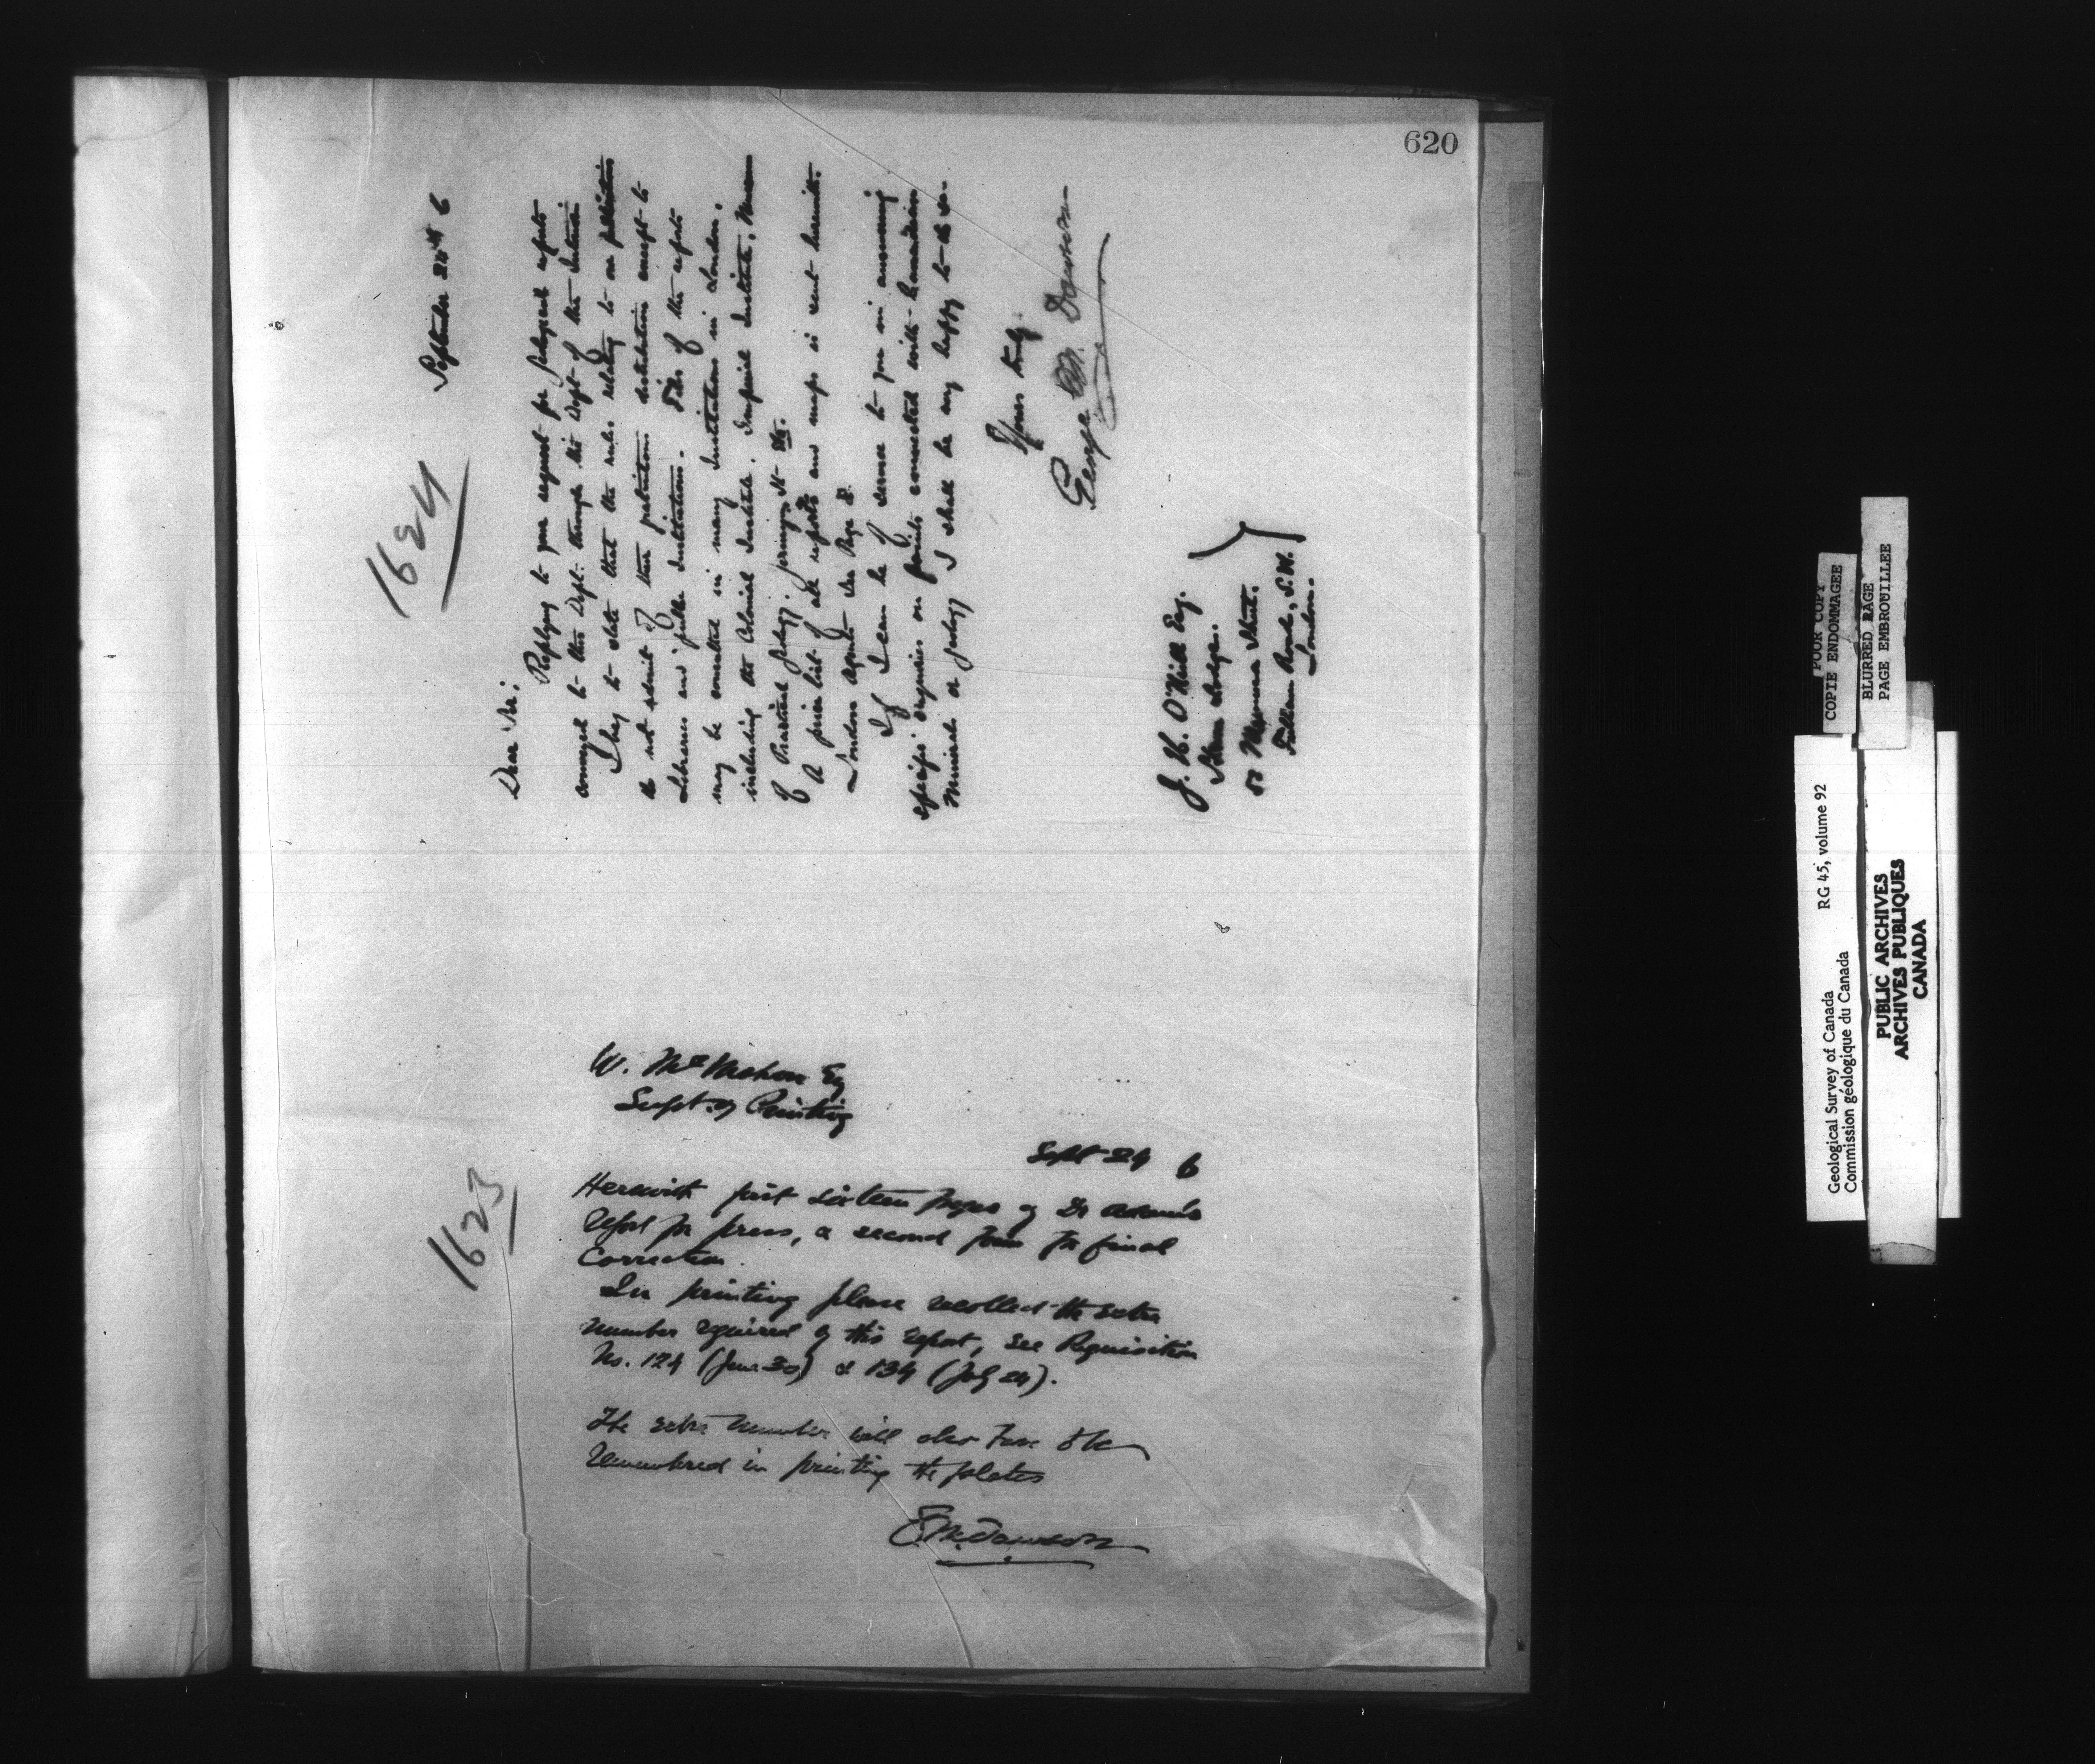 620
1624
September 24th 6
Dear Sir:
Replying to your request for Geological reports
conveyed to this Dept. through the Dept of the Interior
I beg to state that the rules relating to our publications
do not admit of their gratuitous distribution except to
Libraries and public Institutions. Files of the reports
may be consulted in many Institutions in London,
including the Colonial Institute, Imperial Institute, Museum
of Practical Geology, Jermyn St. etc.
A price list of all reports and maps is sent herewith.
London Agents see Page 8.
If I can be of service to you in answering
specific enquiries on points connected with Canadian
Minerals or geology, I shall be very happy to do so.
Yours truly,
George M. Dawson
J. H. O'Neill Esq.
Lodge.
50 Street.
Fulham Road, S.W.
London.
1623
W. McMahon Esq
Supt. of Printing
Sept 24 6
Herewith first sixteen pages of Dr Adams's
report for press, a second form for final
correction.
In printing please recollect the extra
number required of this report, see Requisition
No. 124 (June 30) & 134 (July 24).
The extra number will also have to be
remembered in printing the plates
G. M. Dawson
POOR COPY
COPIE ENDOMMAGEE
BLURRED PAGE
PAGE EMBROUILLEE
Geological Survey of Canada RG 45, volume 92
Commission géologique du Canada
PUBLIC ARCHIVES
ARCHIVES PUBLIQUES
CANADA